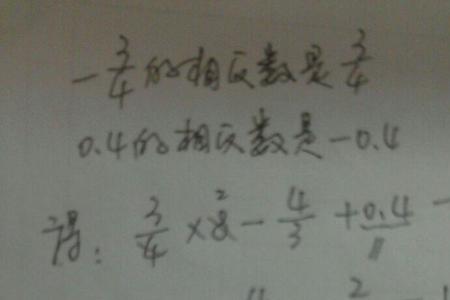 -3/4的相反数是3/4
0.4的相反数是-0.4
得: 3/4 ×8 2 - 4/3 +0.4 -
2